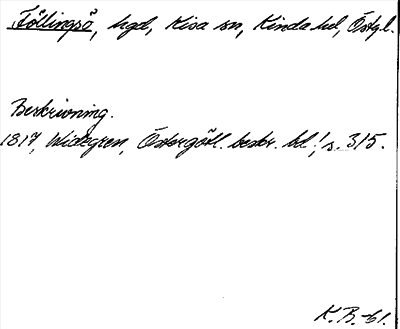 Föllingsö, hgd, Kisa sn, Kinda hd, Östgl.
Beskrivning.
1817, Widegren, Östergötl. beskr. bd 1, s. 315.
K.B.-61.